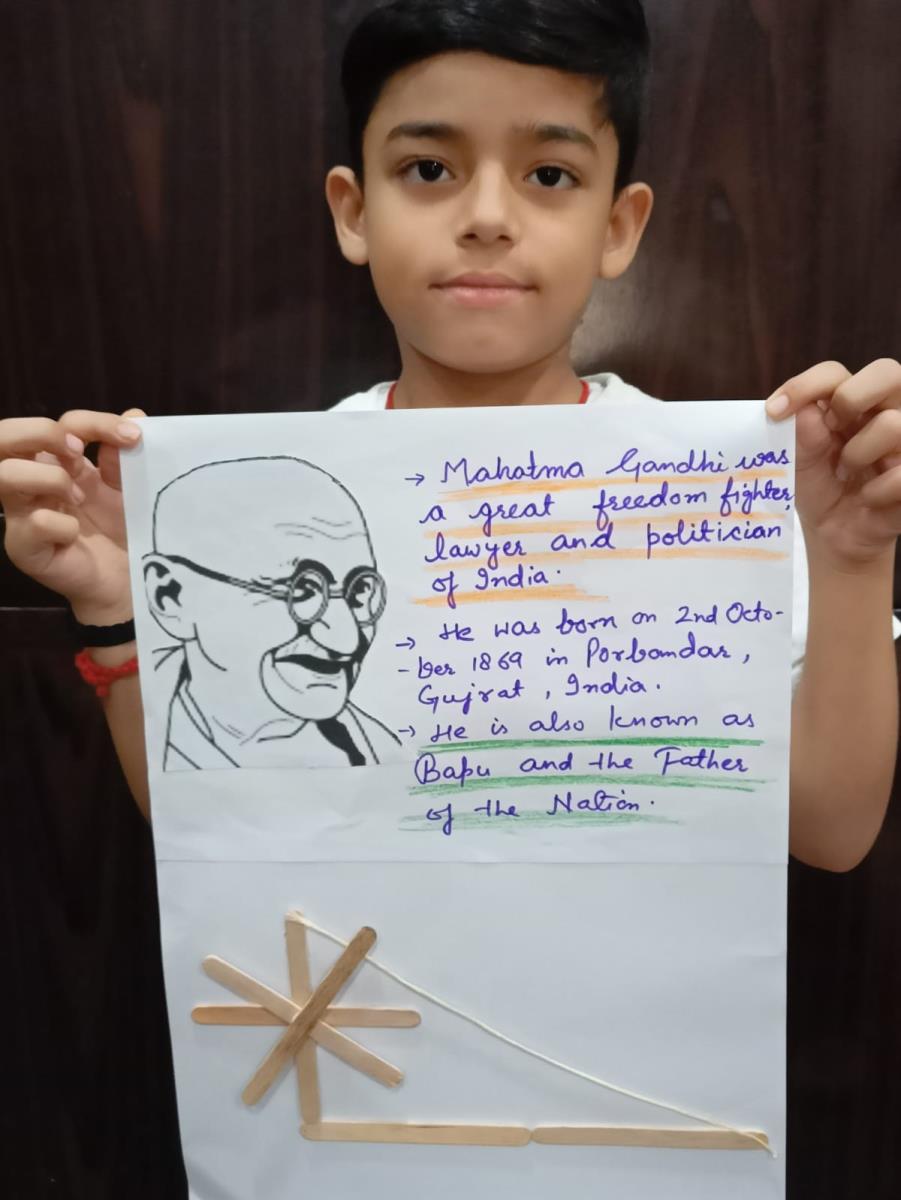 → Mahatma Gandhi was
a great freedom fighter,
lawyer and politician
of India.
→ He was born on 2nd Octo-
-ber 1869 in Porbandar,
Gujrat, India.
→ He is also known as
Bapu and the Father
of the Nation.